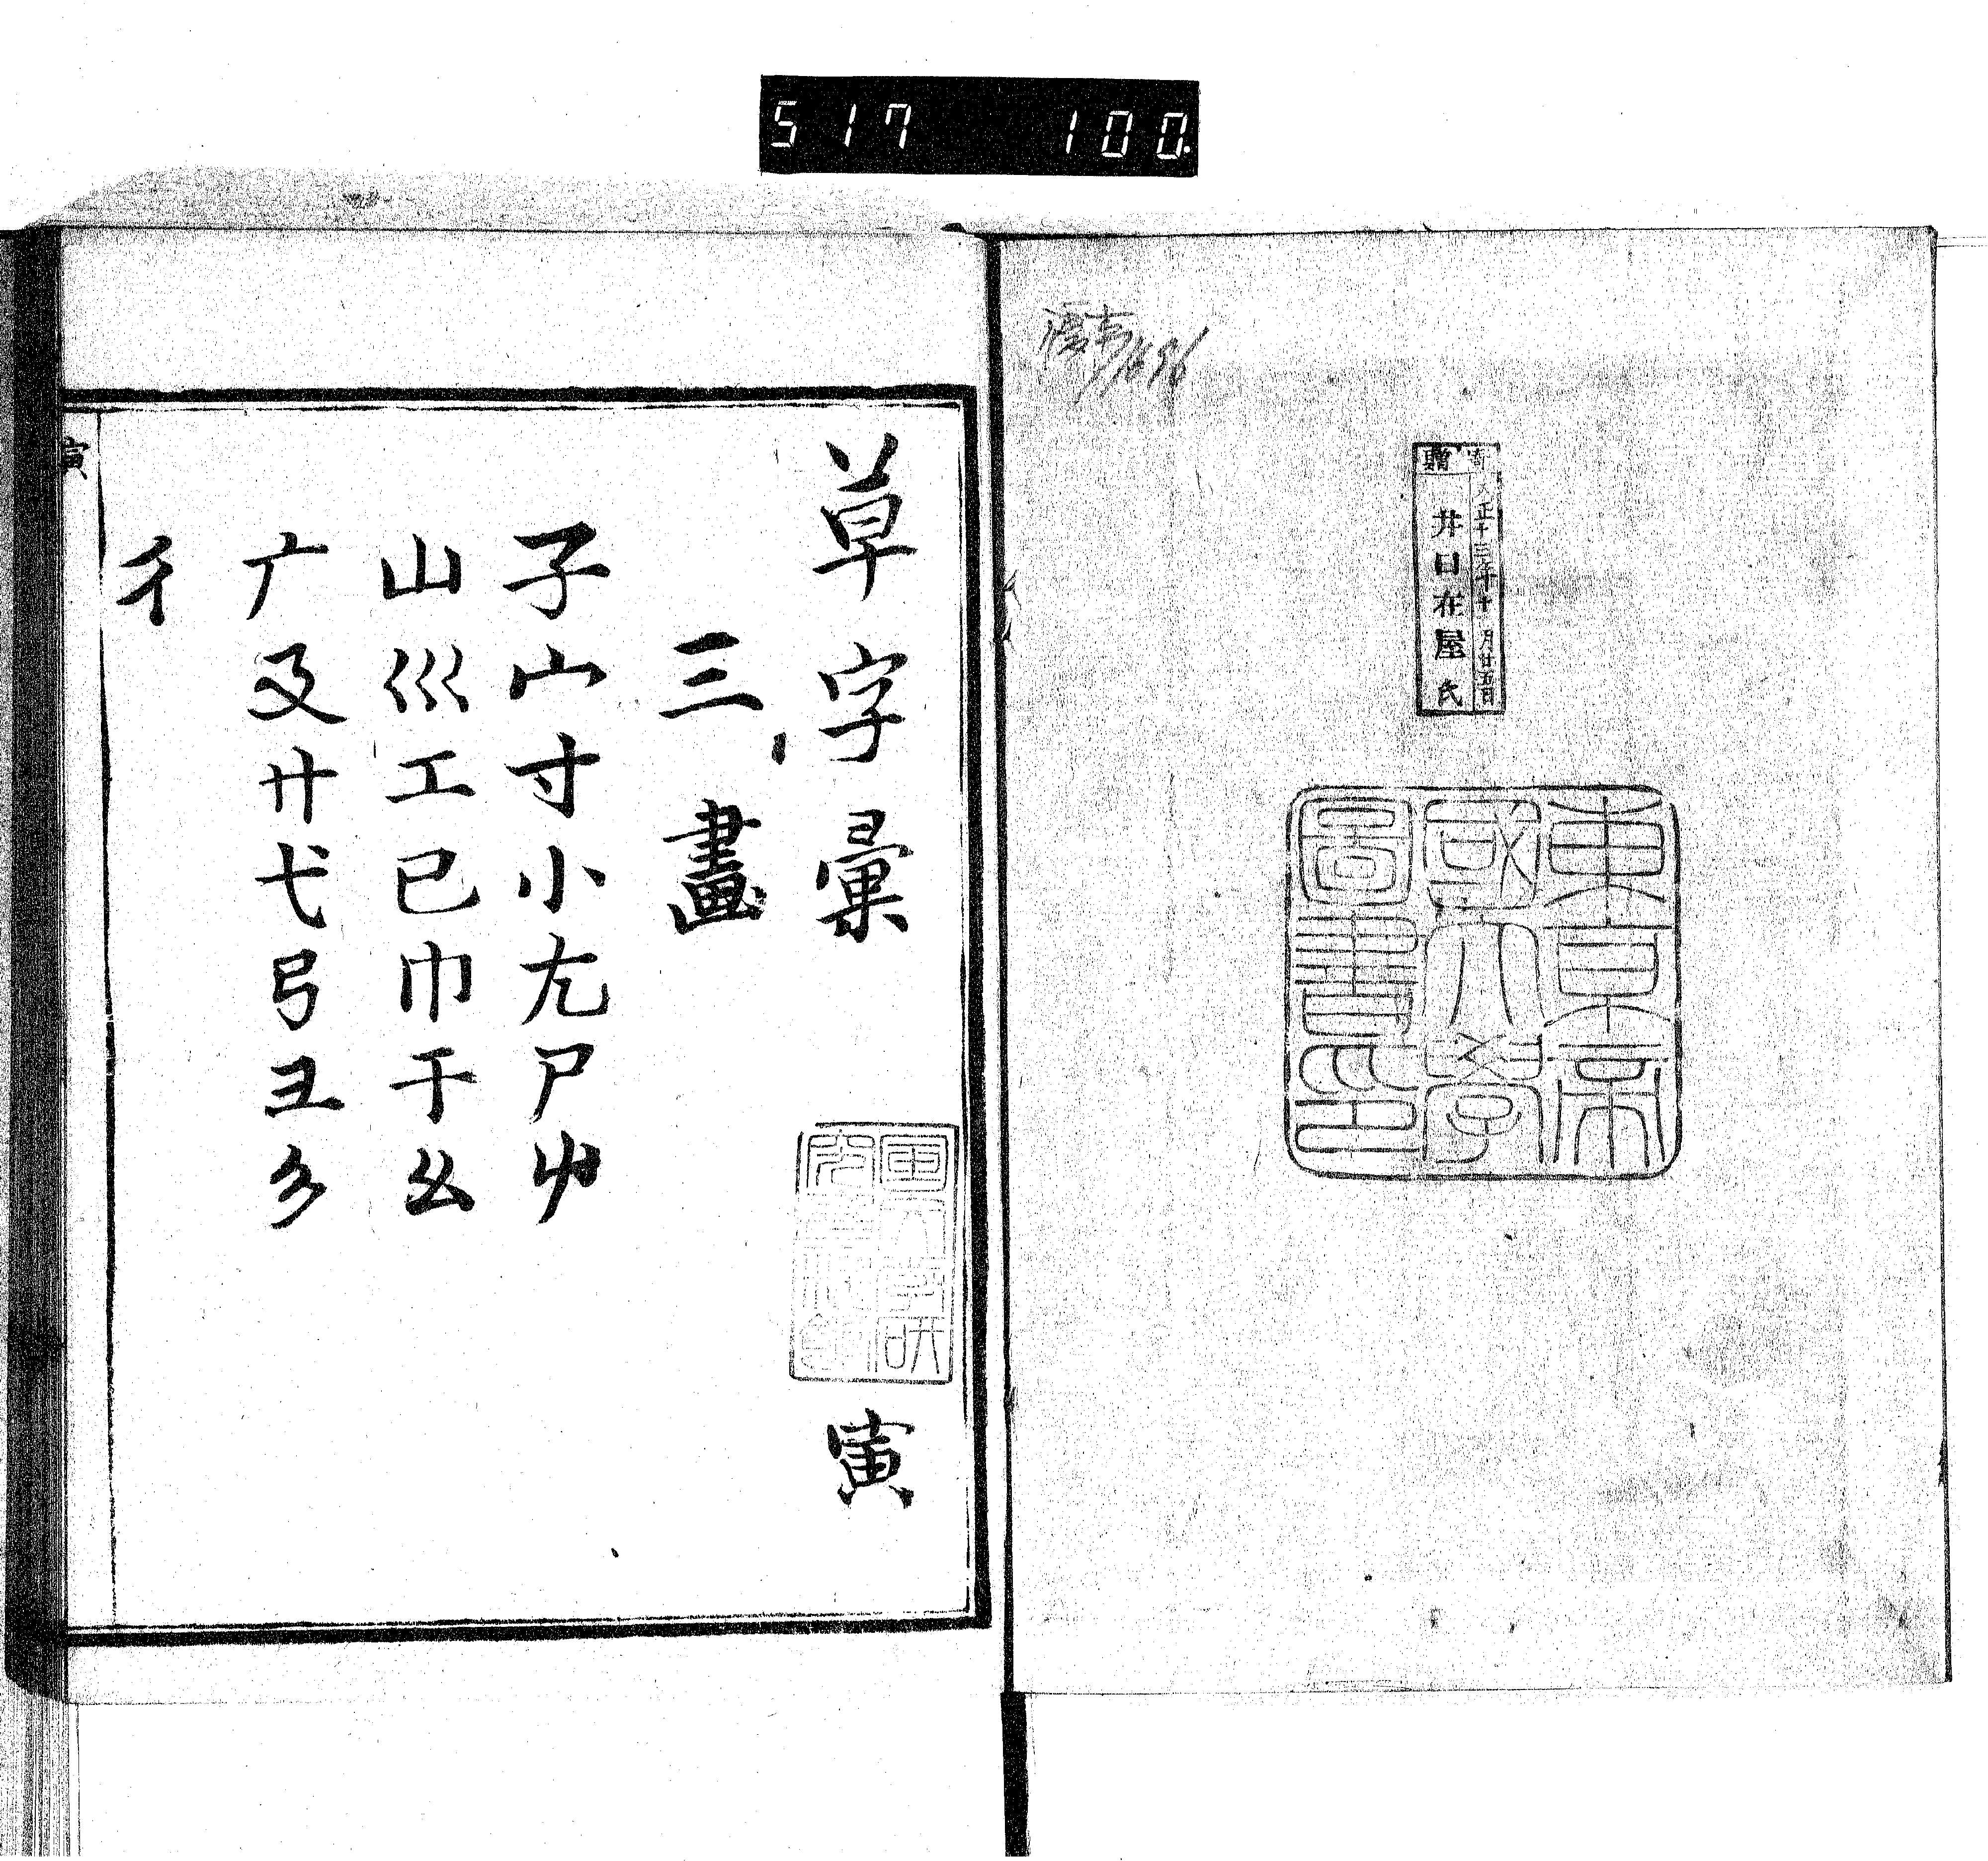 517 100.
寄贈
大正十三年十一月廿五日
井口在屋氏
東京帝
國大學
圖書印
草字彙 寅
三畫
子宀寸小尢尸屮
山巛工已巾干幺
广廴廾弋弓彐彡
彳
寅